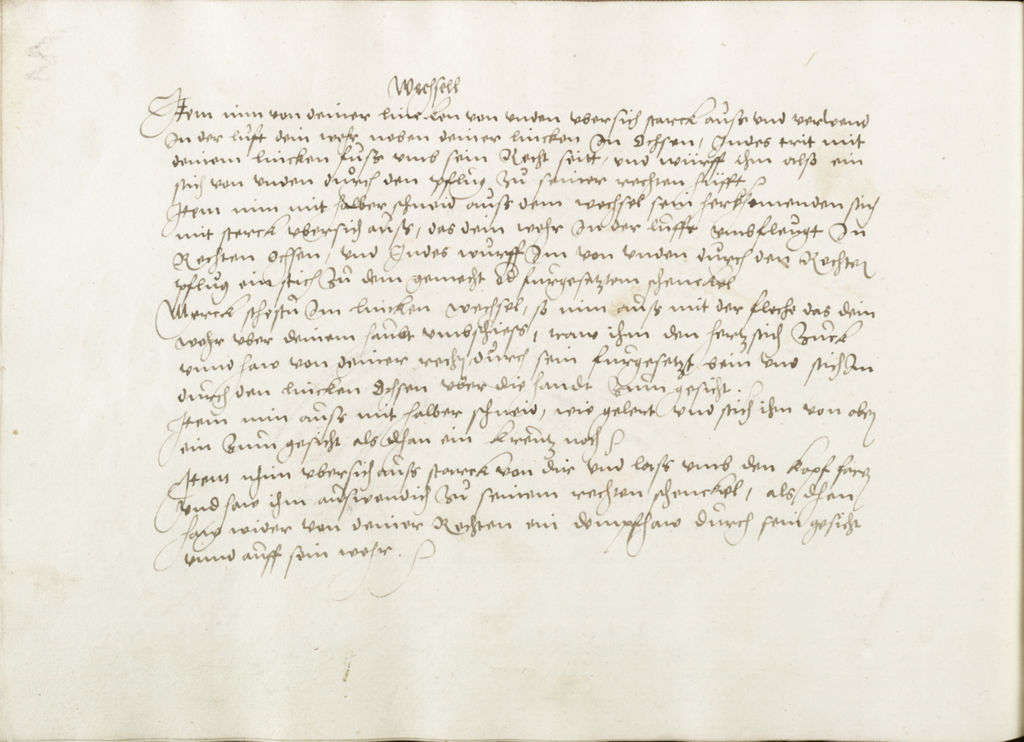 Wechsell
Item nim von deiner lincken von unden ubersich starck auß und verwend
In der lufft dein wehr neben deiner lincken In Ochsen, Indes trit mit
deinem lincken fuß umb sein Recht seitt, und würff ihm alß ein
stich von unden durch den pflug zu seiner rechten hüfft
Item nim mit halber schneid auß dem wechsel sein herkhomenden stich
mit sterck ubersich auß, das dein wehr In der lufft umbfleugt In
Rechten Ochsen, und Indes wurff Im von unden durch den Rechten
pflug ein stich zu dem gemecht od furgesetztem schenckel
Merck stehestu Im lincken wechsel, so nim auß mit der fleche das dein
wehr uber deinem haubt umbschiess, traw ihm den hertzstich Zuck
unnd haw von deiner rechten durch sein furgesetzt bein und stich Im
durch den lincken Ochsen uber die handt Zum gesicht.
Item nim auß mit halber schneid, wie gelert und stich ihm von oben
ein Zum gesicht als dhan ein kreutz nach
Item nhim ubersich auß starck von dir und lass umb den kopf farn
und haw ihm auswendich zu seinem rechten schenckel, als dhan
haw wider von deiner Rechten ein dempfhaw durch sein gesicht
unnd auff sein wehr.